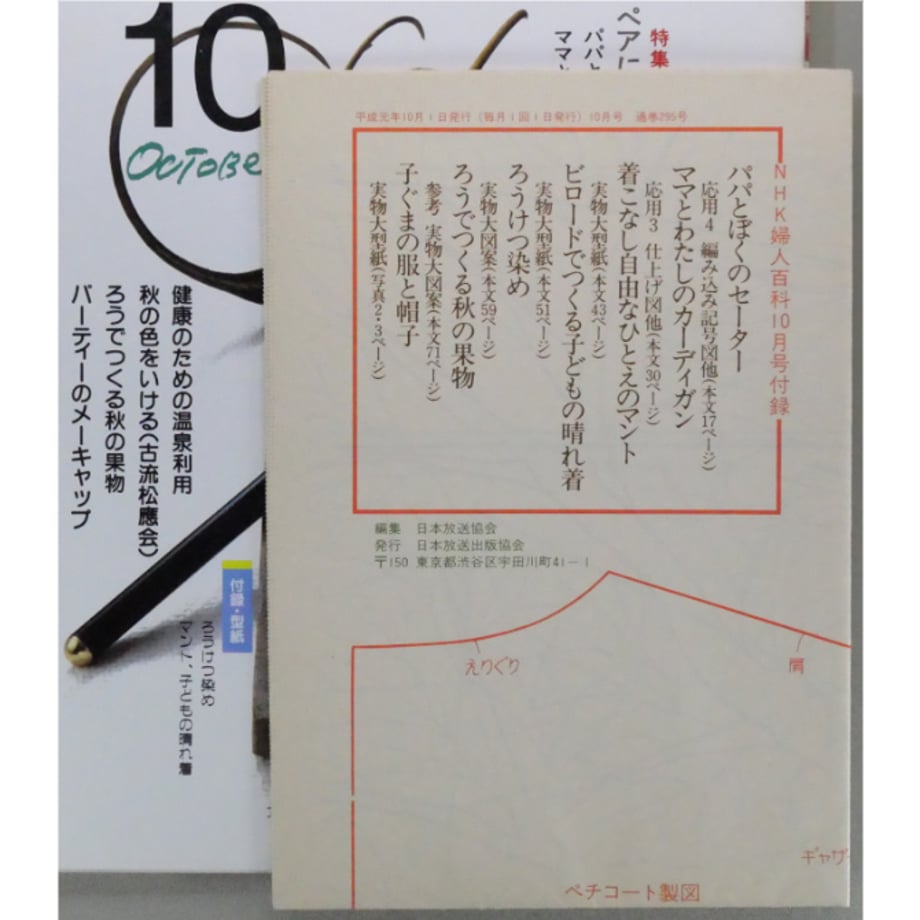 10
OCTOBE
特集
ペアに
パパと
ママと
健康のための温泉利用
秋の色をいける(古流松應会)
ろうでつくる秋の果物
パーティーのメーキャップ
付録・型紙
ろうけつ染め
マント、子どもの晴れ着
平成元年10月1日発行(毎月1回1日発行)10月号 通巻295号
NHK婦人百科10月号付録
パパとぼくのセーター
応用4 編み込み記号図他(本文17ページ)
ママとわたしのカーディガン
応用3 仕上げ図他(本文30ページ)
着こなし自由なひとえのマント
実物大型紙(本文43ページ)
ビロードでつくる子どもの晴れ着
実物大型紙(本文51ページ)
ろうけつ染め
実物大図案(本文59ページ)
ろうでつくる秋の果物
参考 実物大図案(本文71ページ)
子ぐまの服と帽子
実物大型紙(写真2・3ページ)
編集 日本放送協会
発行 日本放送出版協会
〒150 東京都渋谷区宇田川町41-1
えりぐり
肩
ギャザ
ペチコート製図